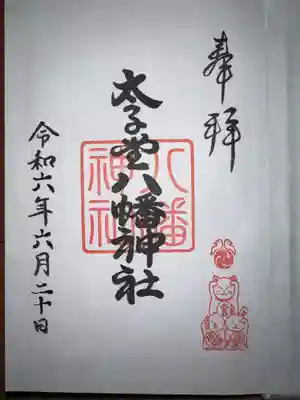 奉拝
太子堂八幡神社
八幡
神社
令和六年六月二十日